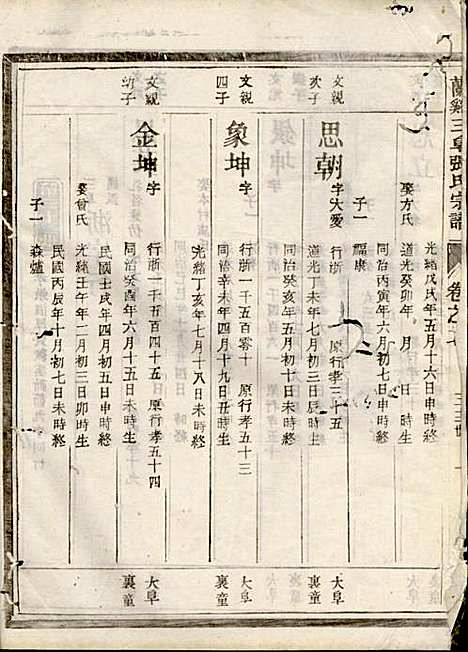 蘭谿三阜張氏宗譜
卷之
光緒戊戌年五月十六日申時終
娶方氏
道光癸卯年 月 日 時生
同治丙寅年六月初七日申時終
子一
福康
文親
次子
思朝
字大愛
行浙一
原行孝三十五
道光丁未年七月初三日辰時生
同治癸亥年五月初十日未時終
大阜
裏童
文親
四子
象坤
字
行浙一千五百零十
原行孝五十三
同治辛未年四月十九日丑時生
光緒丁亥年七月十八日未時終
大阜
裏童
文親
幼子
金坤
字
行浙一千五百四十五
原行孝五十四
同治癸酉年六月十五日未時生
民國壬戌年四月初五日申時終
大阜
裏童
娶曾氏
光緒壬午年二月初三日卯時生
民國丙辰年十月初七日未時終
子一
森爐